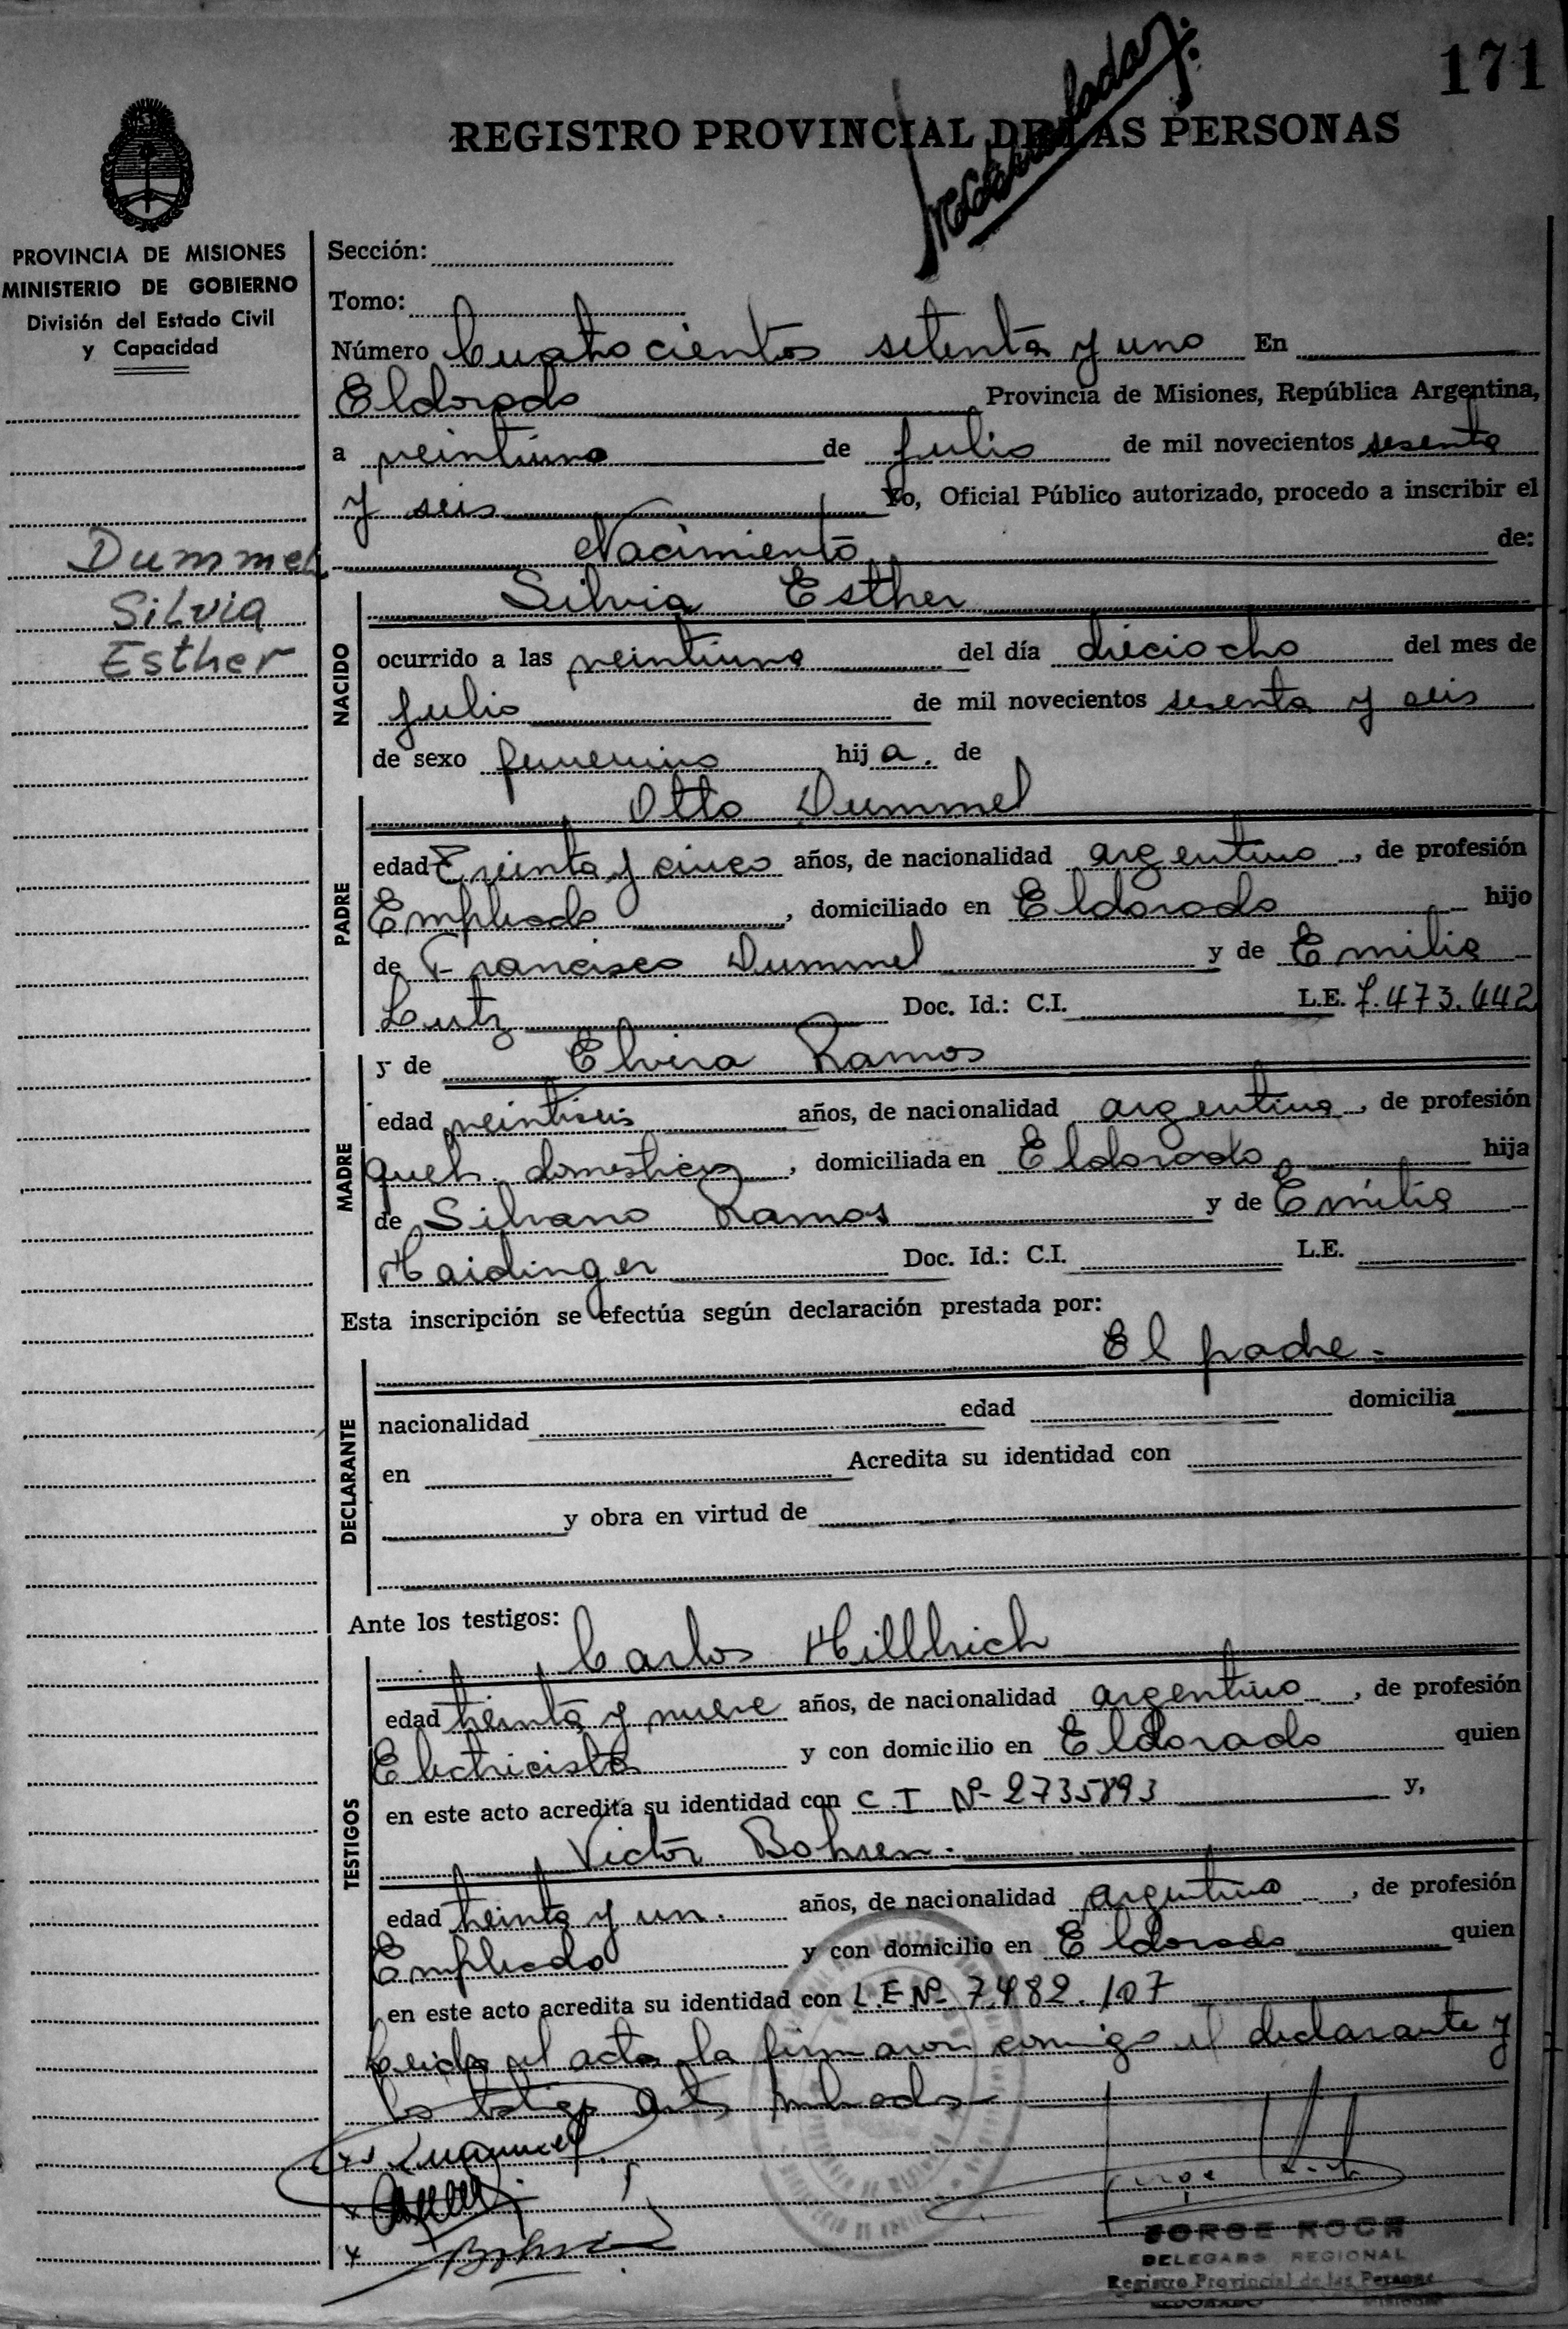 171
REGISTRO PROVINCIAL DE LAS PERSONAS
PROVINCIA DE MISIONES
MINISTERIO DE GOBIERNO
División del Estado Civil
y Capacidad
Dummel
Silvia
Esther
Sección:
Tomo:
Número Cuatrocientos setenta y uno En
Eldorado Provincia de Misiones, República Argentina,
a veintiuno de Julio de mil novecientos sesenta
y seis Yo, Oficial Público autorizado, procedo a inscribir el
Nacimiento de:
NACIDO
Silvia Esther
ocurrido a las veintiuna del día dieciocho del mes de
Julio de mil novecientos sesenta y seis
de sexo femenino hija. de
PADRE
Otto Dummel
edad Treinta y cinco años, de nacionalidad argentino, de profesión
Empleado, domiciliado en Eldorado hijo
de Francisco Dummel y de Emilia
Lutz Doc. Id.: C.I. L.E. 7.473.442
MADRE
y de Elvira Ramos
edad veintiseis años, de nacionalidad argentina, de profesión
queh. domesticos, domiciliada en Eldorado hija
de Silvano Ramos y de Emilia
Haidinger Doc. Id.: C.I. L.E.
Esta inscripción se efectúa según declaración prestada por:
El padre.-
DECLARANTE
nacionalidad edad domicilia
en Acredita su identidad con
y obra en virtud de
Ante los testigos:
TESTIGOS
Carlos Hillbrich
edad treinta y nueve años, de nacionalidad argentino, de profesión
Electricista y con domicilio en Eldorado quien
en este acto acredita su identidad con C.I Nº 2735893 y,
Victor Bohren.
edad treinta y un. años, de nacionalidad argentino, de profesión
Empleado y con domicilio en Eldorado quien
en este acto acredita su identidad con L.E Nº 7.482.107
Leida el acta la firmaron conmigo el declarante y
los testigos
JORGE KOCH
DELEGADO REGIONAL
Registro Provincial de las Personas
ELDORADO MISIONES